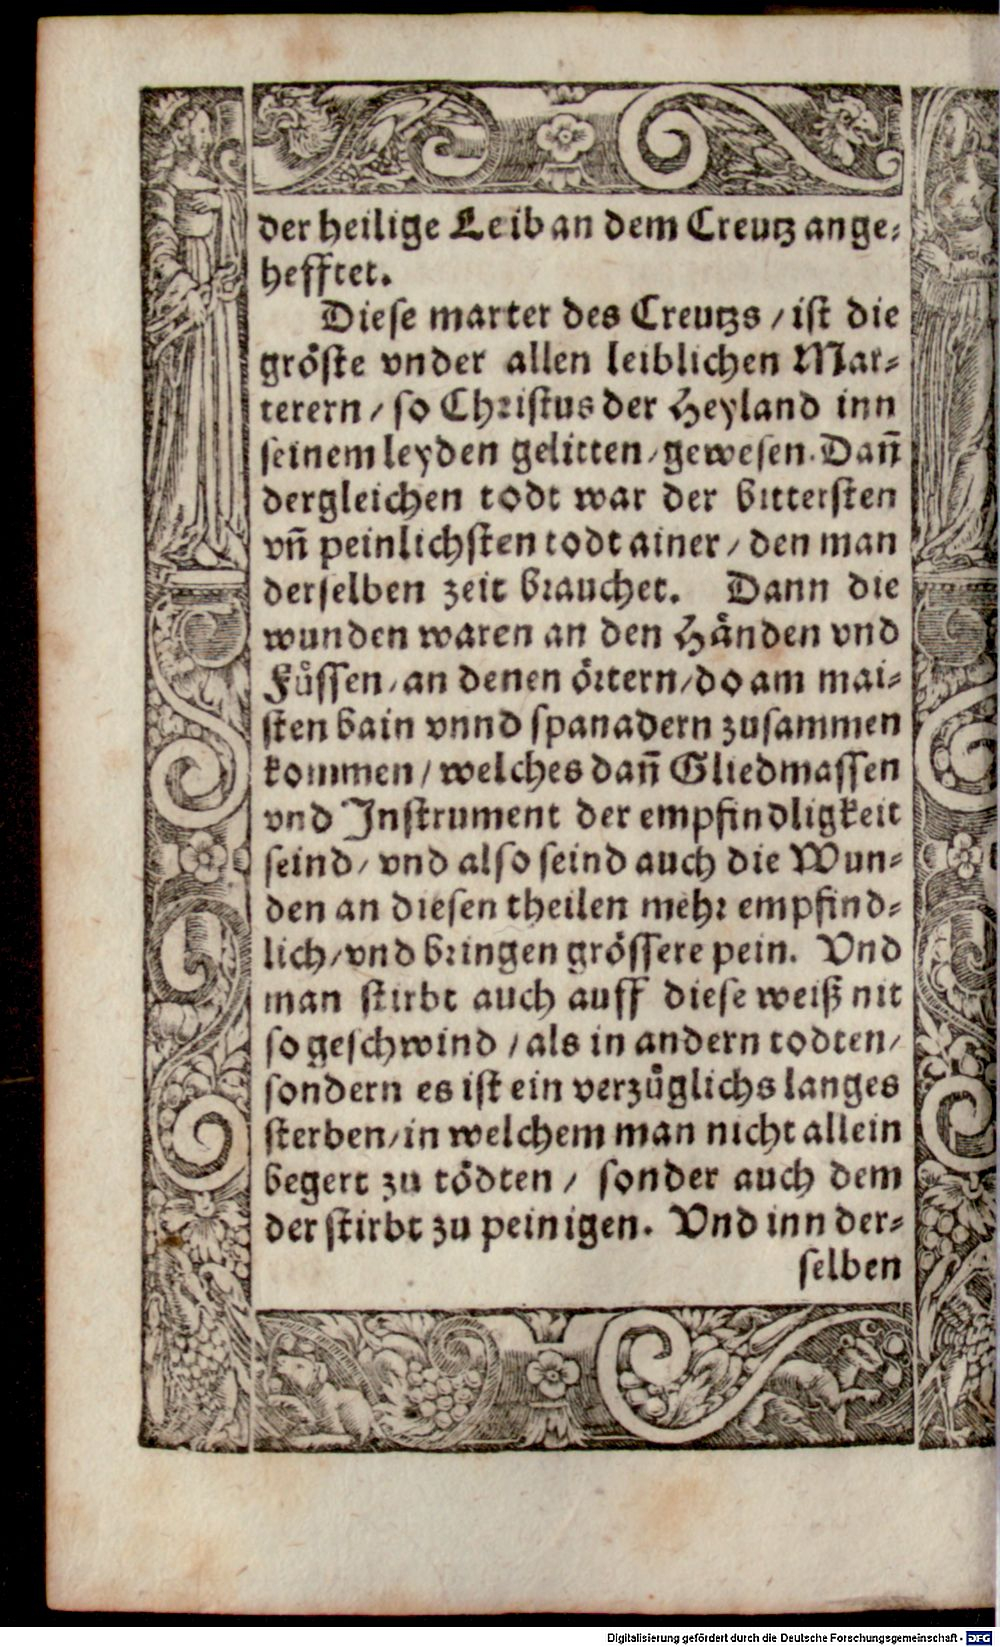 der heilige Leib an dem Creutz ange-
hefftet.
Diese marter des Creutzs / ist die
gröste vnder allen leiblichen Mar-
terern / so Christus der Heyland inn
seinem leyden gelitten / gewesen. Dañ
dergleichen todt war der bittersten
vñ peinlichsten todt ainer / den man
derselben zeit brauchet. Dann die
wunden waren an den Händen vnd
Füssen / an denen örtern / do am mai-
sten bain vnnd spanadern zusammen
kommen / welches dañ Gliedmassen
vnd Instrument der empfindligkeit
seind / vnd also seind auch die Wun-
den an diesen theilen mehr empfind-
lich / vnd bringen grössere pein. Vnd
man stirbt auch auff diese weiß nit
so geschwind / als in andern todten /
sondern es ist ein verzüglichs langes
sterben / in welchem man nicht allein
begert zu tödten / sonder auch dem
der stirbt zu peinigen. Vnd inn der-
selben
Digitalisierung gefördert durch die Deutsche Forschungsgemeinschaft - DFG